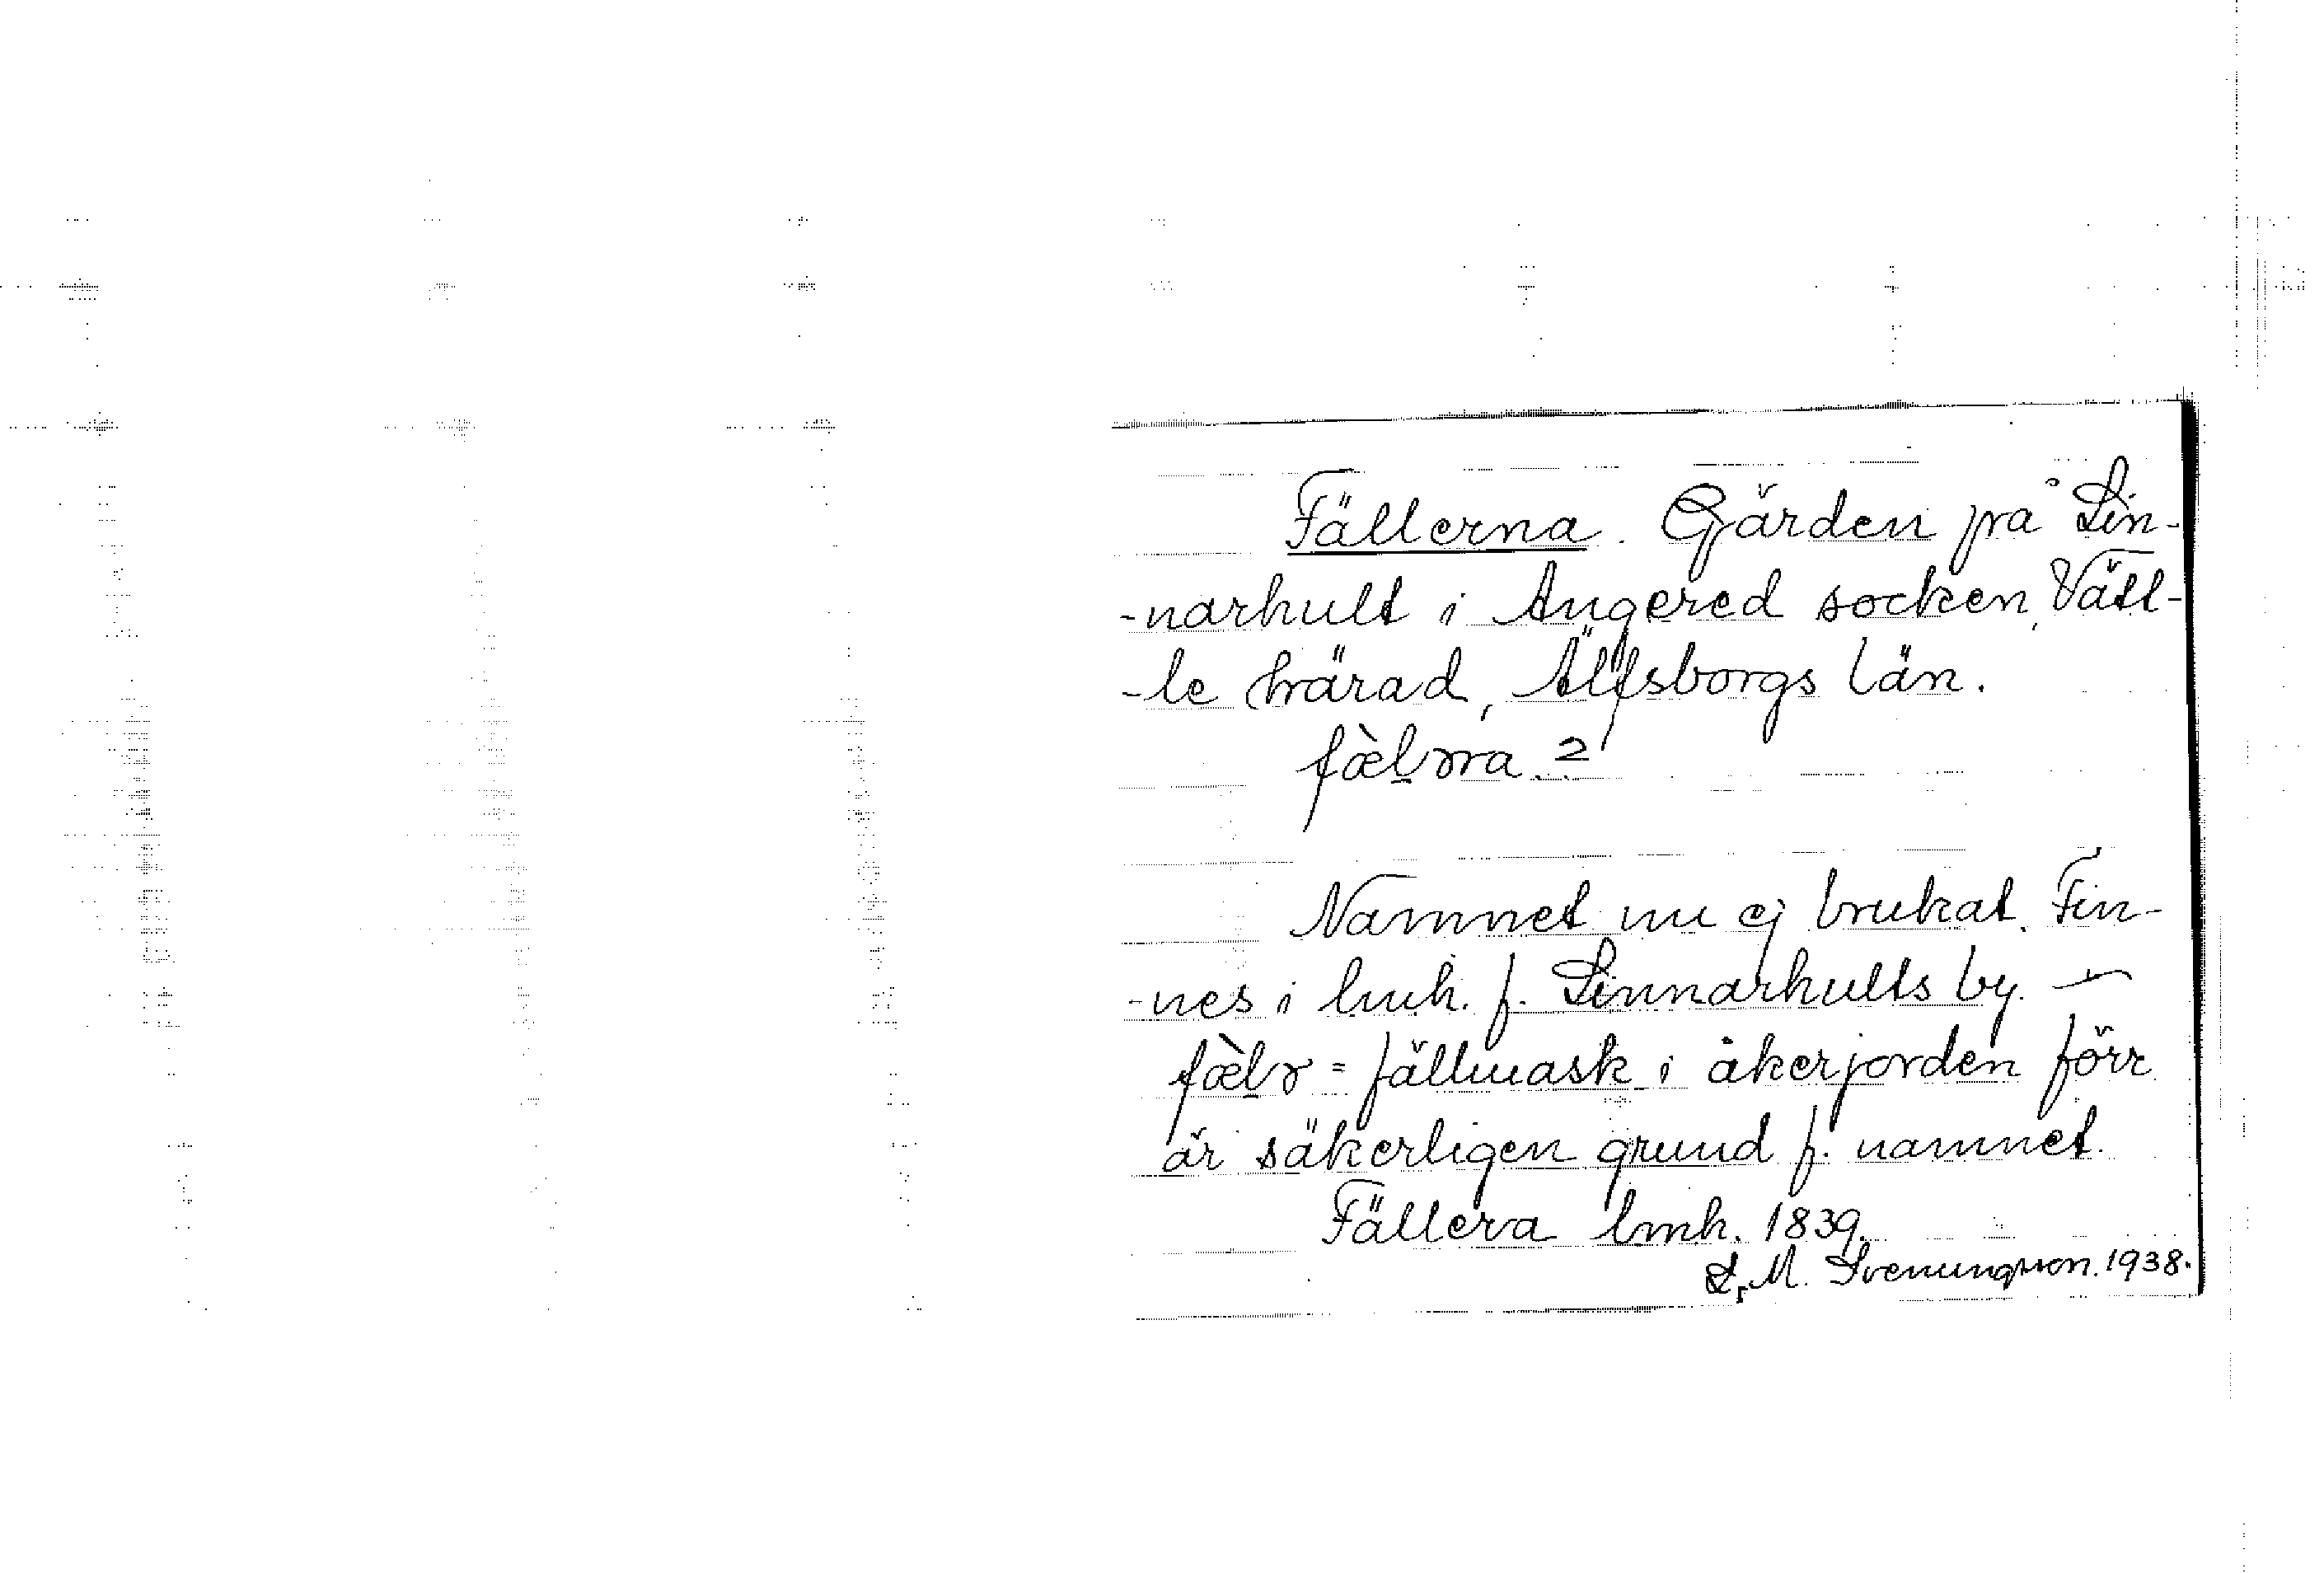 Fällerna. Gärden på Lin-
-narhult i Angered socken, Vätt-
-le härad, Älfsborgs län.
Namnet nu ej brukat. Fin-
-nes i lmh. f. Linnarhults by. —
= fällmask i åkerjorden förr
är säkerligen grund f. namnet.
Fällera lmh. 1839.
L. M. Svenungsson. 1938.